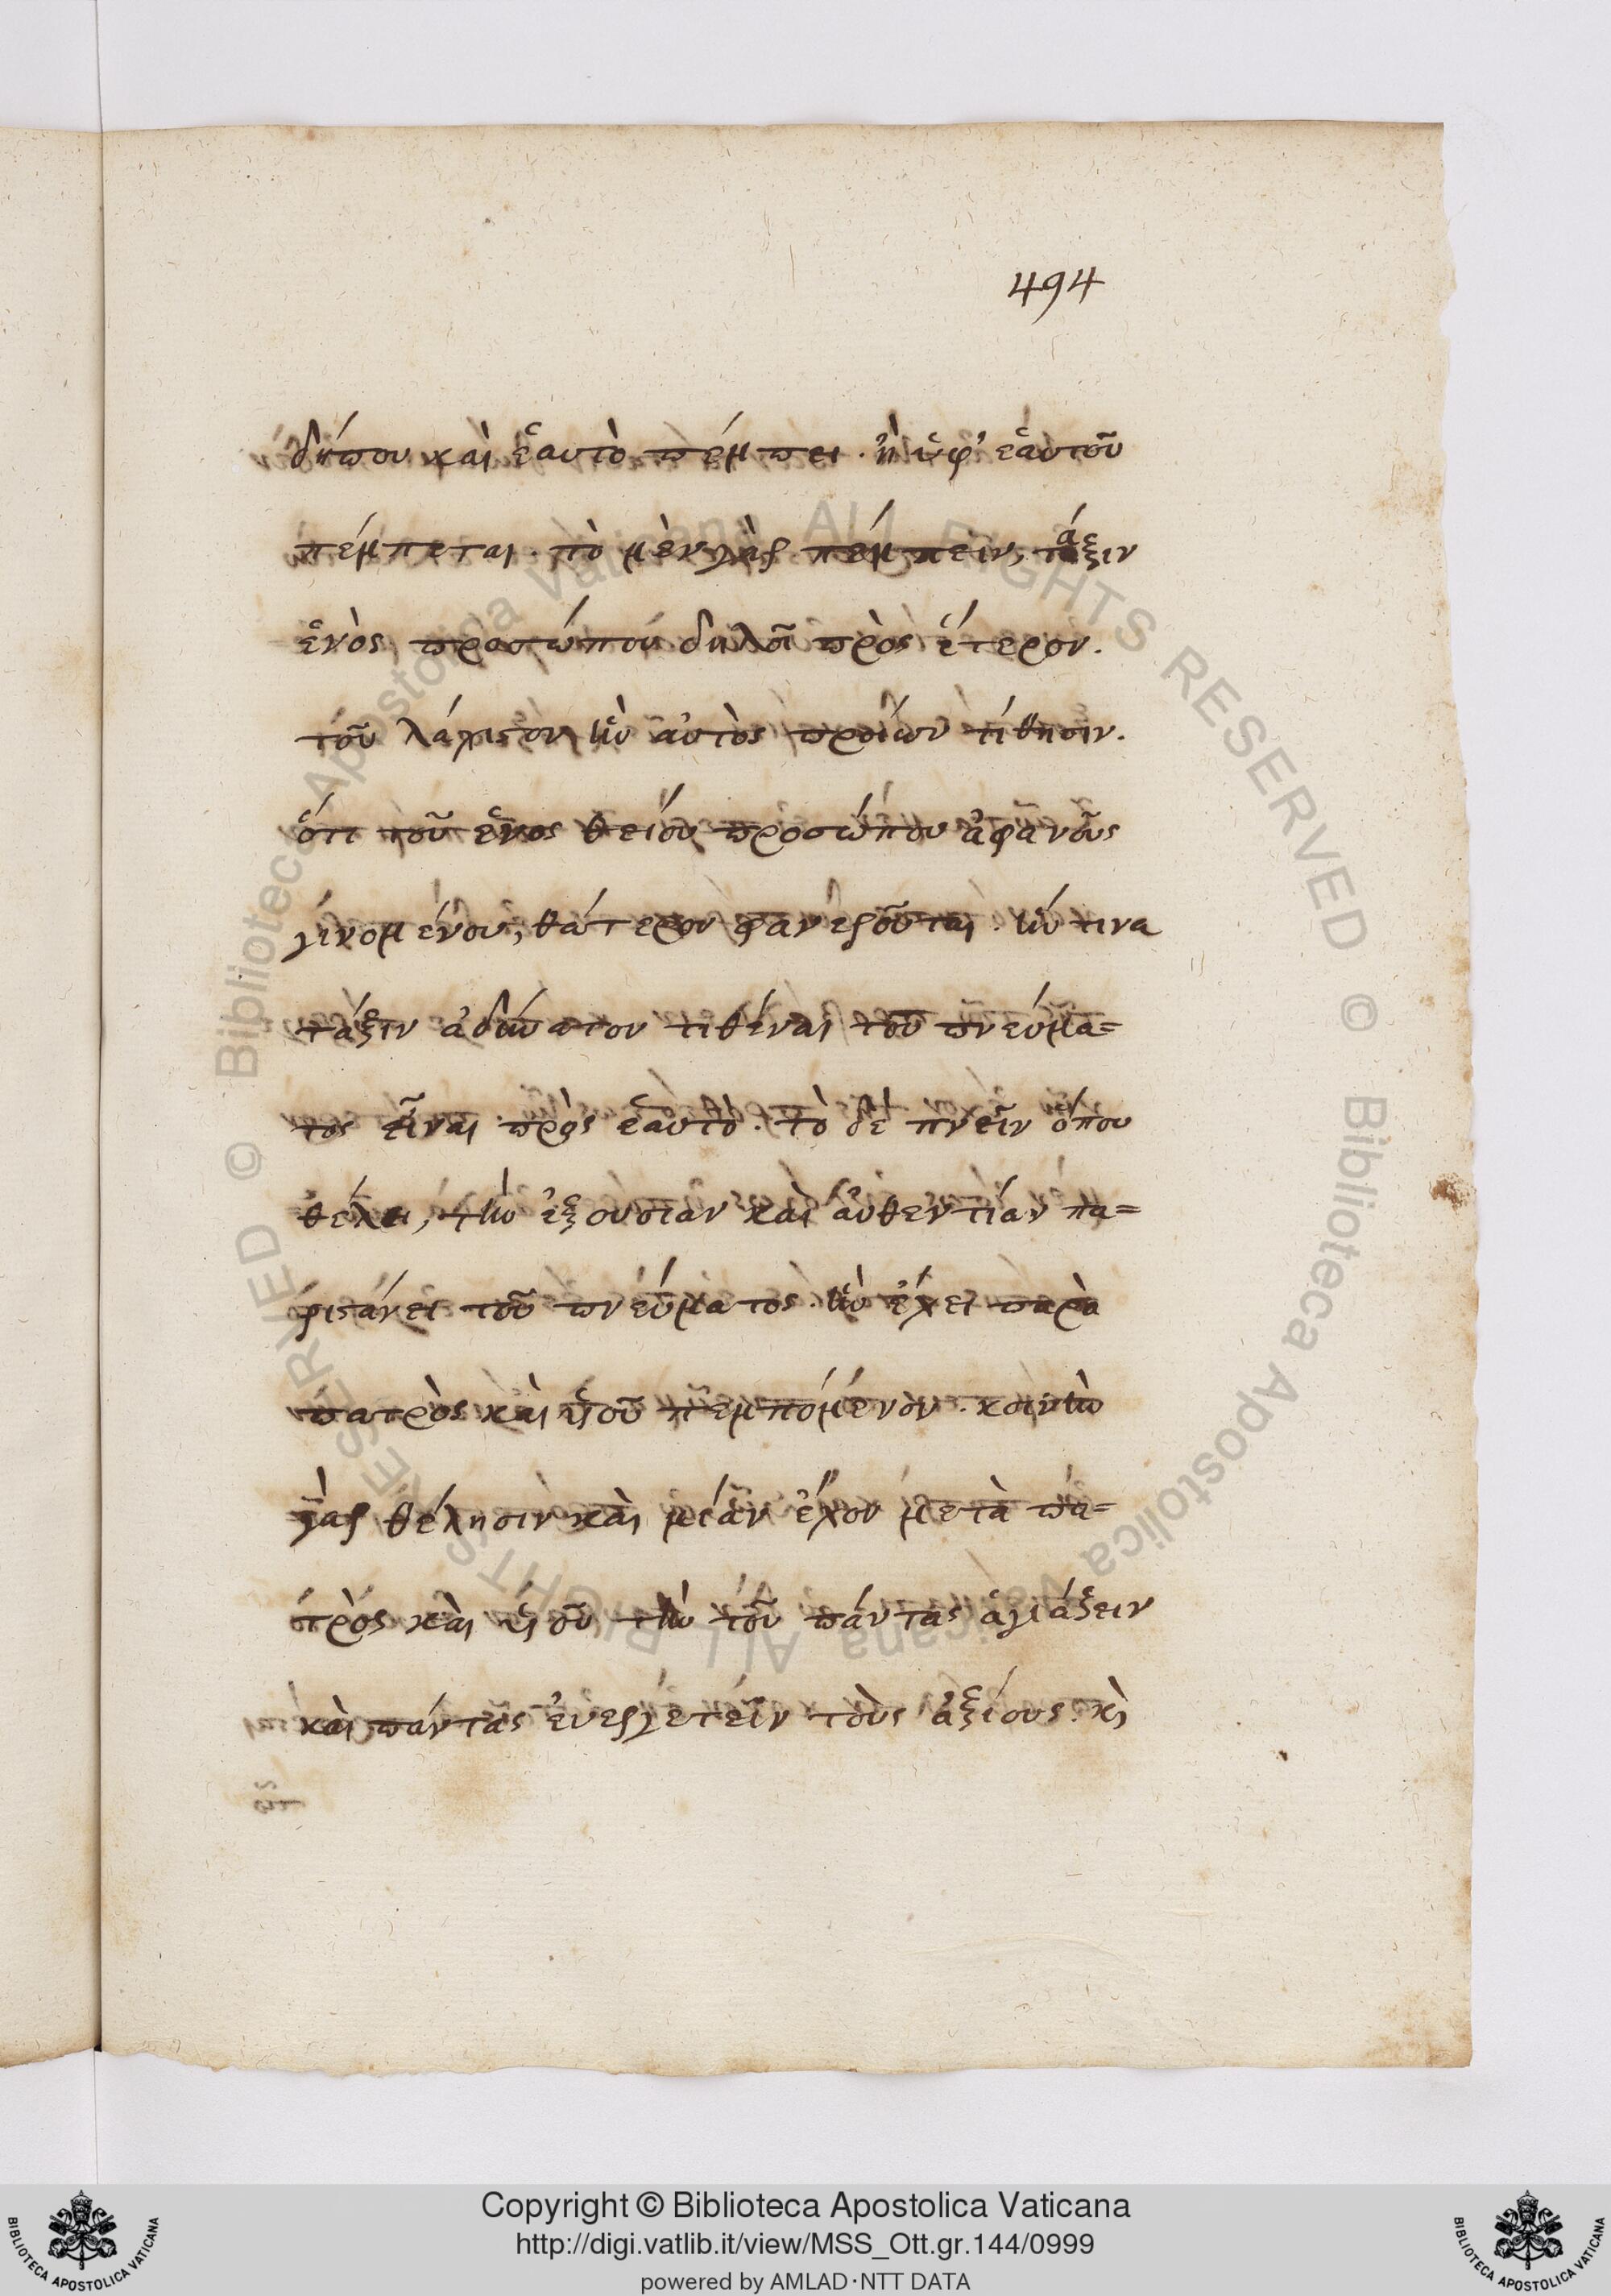 494
δήπου καὶ ἑαυτὸ πέμπει. ἢ ὑφ' ἑαυτοῦ
πέμπεται. τὸ μὲν γὰρ πέμπειν, τάξιν
ἑνὸς προσώπου δηλοῖ πρὸς ἕτερον.
τοῦ λάχιστον ἣν αὐτὸς προϊὼν τίθησιν.
ὅτι τοῦ ἑνος θείου προσώπου ἀφανοῦς
γινομένου, θάτερον φανεροῦται. ἥν τινα
τάξιν ἀδύνατον τιθέναι τοῦ πνεύμα=
τος εἶναι πρὸς ἑαυτὸ. τὸ δὲ πνεῖν ὅπου
θέλει, τὴν ἐξουσίαν καὶ αὐθεντίαν πα=
ριστάνει τοῦ πνεύματος. ἣν ἔχει παρὰ
πατρὸς καὶ υἱοῦ πεμπόμενον. κοινὴν
γὰρ θέλησιν καὶ μίαν ἔχον μετὰ πα=
τρὸς καὶ υἱοῦ τὴν τοῦ πάντας ἁγιάζειν
καὶ πάντας ἐυεργετεῖν τοὺς ἀξίους. κὶ
Copyright © Biblioteca Apostolica Vaticana
http://digi.vatlib.it/view/MSS_Ott.gr.144/0999
powered by AMLAD·NTT DATA
BIBLIOTECA APOSTOLICA VATICANA
BIBLIOTECA APOSTOLICA VATICANA
© Biblioteca Apostolica Vaticana ALL RIGHTS RESERVED
© Biblioteca Apostolica Vaticana ALL RIGHTS RESERVED